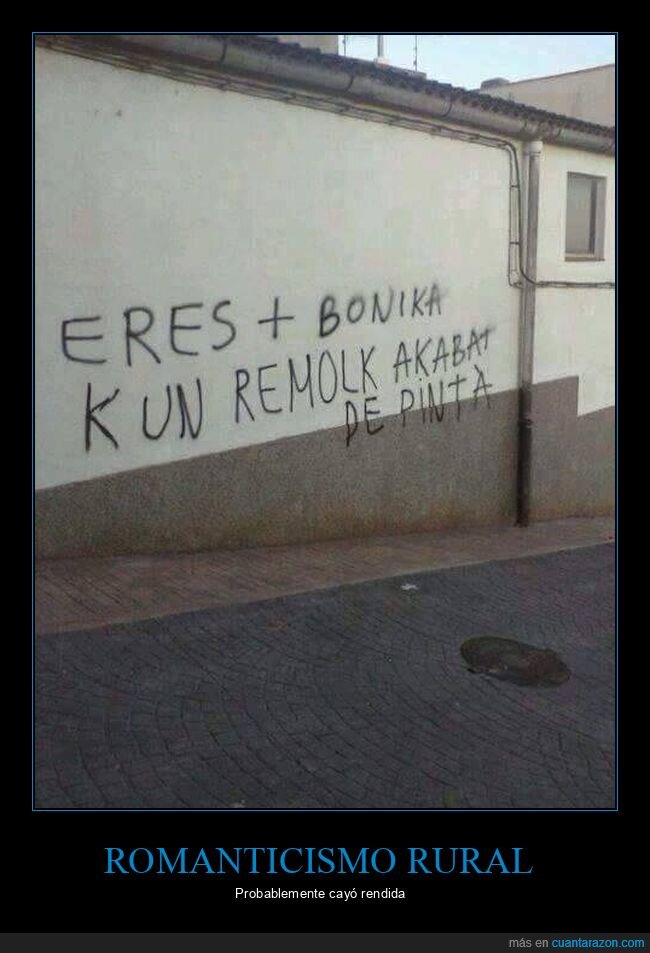 ERES + BONIKA
K UN REMOLK AKABAT
DE PINTÀ
ROMANTICISMO RURAL
Probablemente cayó rendida
más en cuantarazon.com